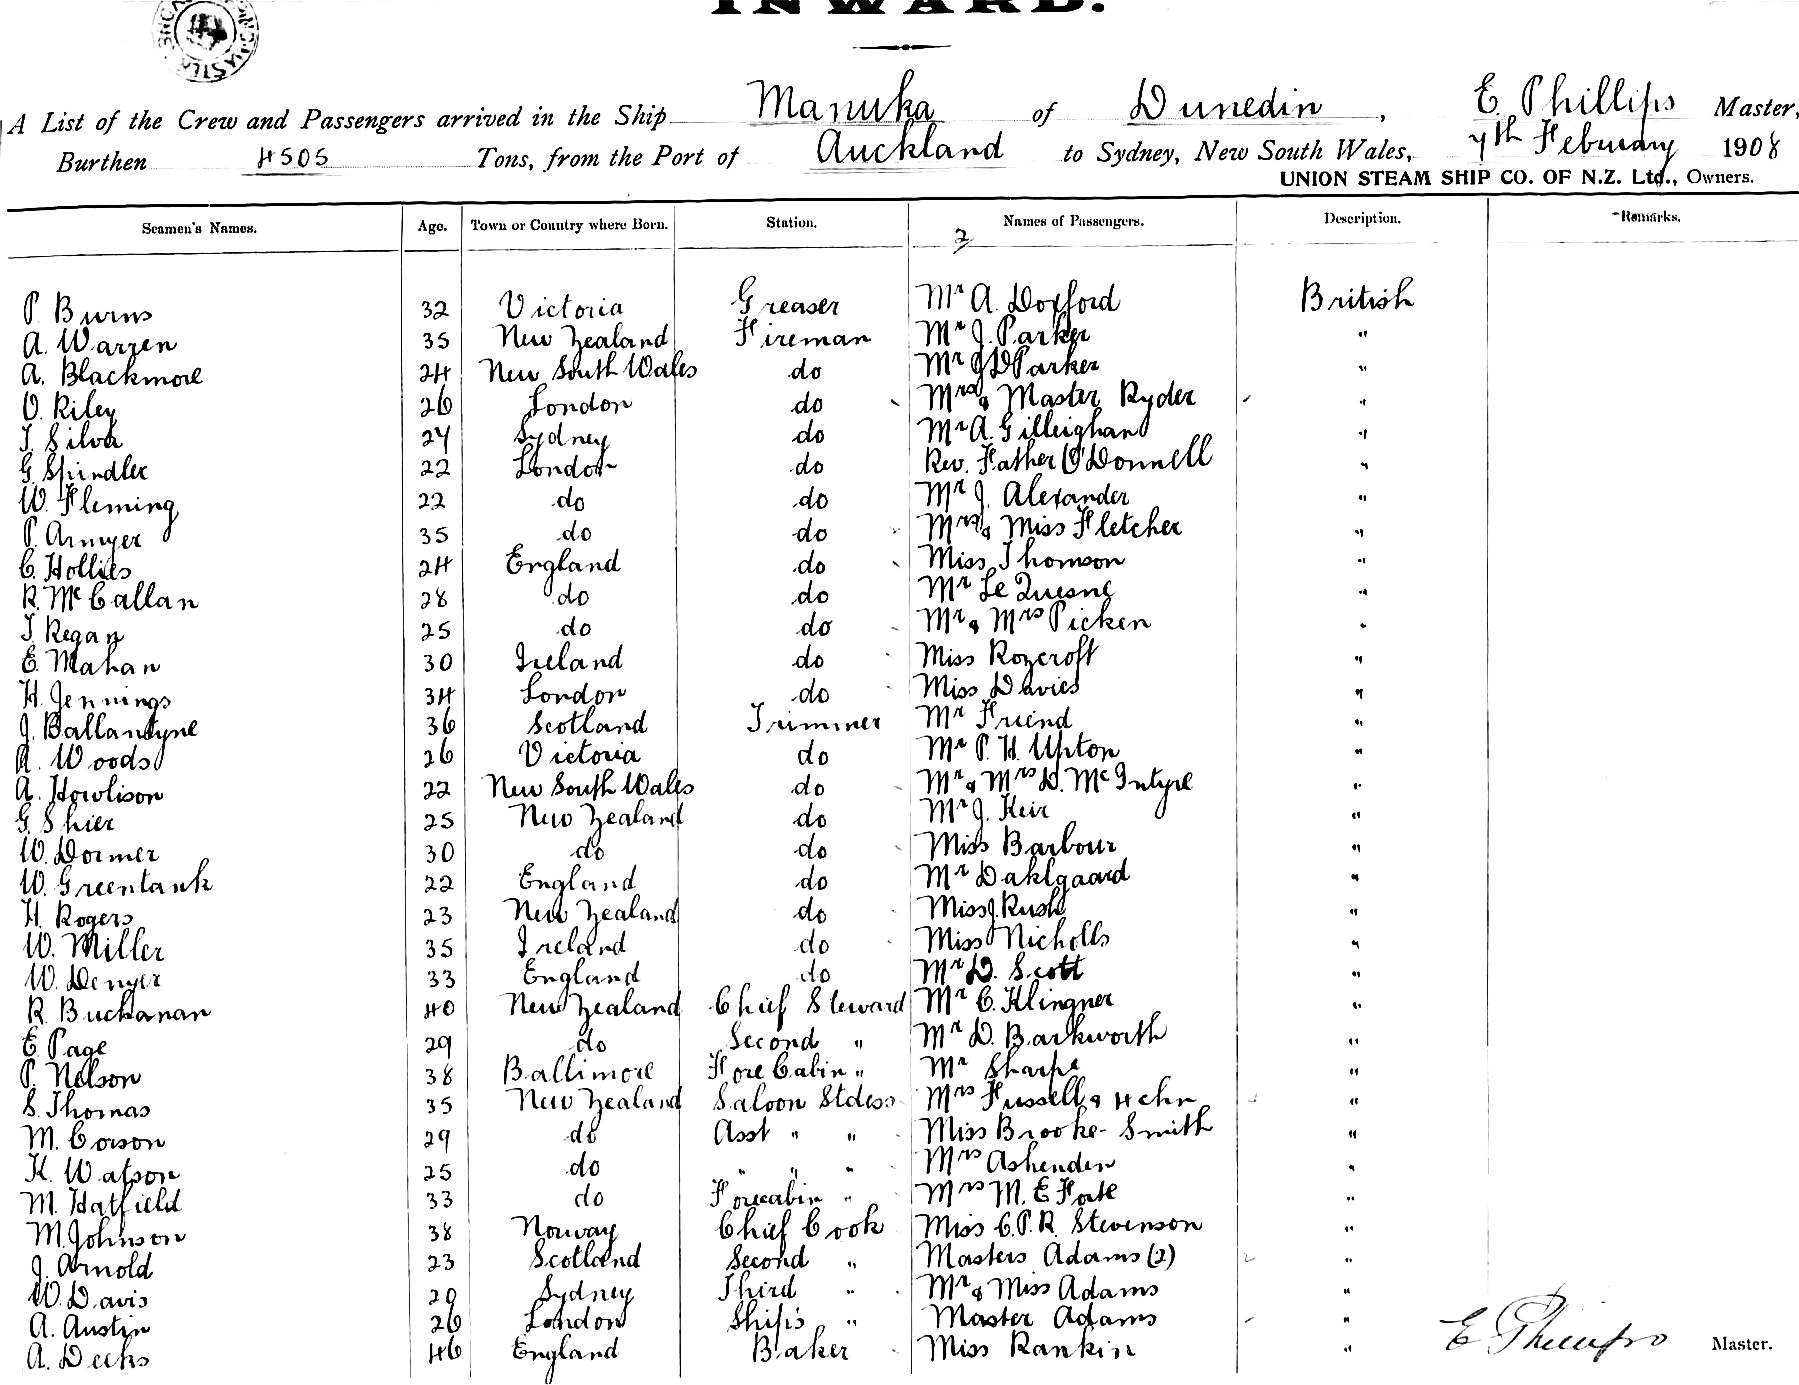 INWARD.
A List of the Crew and Passengers arrived in the Ship Manuka of Dunedin, E. Phillips Master,
Burthen 4505 Tons, from the Port of Auckland to Sydney, New South Wales, 7th February 1908
UNION STEAM SHIP CO. OF N.Z. Ltd., Owners.
Seamen's Names. Age. Town or Country where Born. Station. Names of Passengers. Description. Remarks.
2
P. Burns 32 Victoria Greaser Mr A. Doxford British
A. Warren 35 New Zealand Fireman Mr J. Parker "
A. Blackmore 24 New South Wales do Mr J D Parker "
O. Riley 26 London do Mrs & Master Ryder "
J. Silva 27 Sydney do Mr A. Gilleighan "
G. Spindler 22 London do Rev. Father O'Donnell "
W. Fleming 22 do do Mr J. Alexander "
P. Armyer 35 do do Mrs & Miss Fletcher "
C. Hollies 24 England do Miss Thomson "
R. McCallan 28 do do Mr Le Quesne "
J. Regan 25 do do Mr & Mrs Picken "
E. Mahan 30 Ireland do Miss Roycroft "
H. Jennings 34 London do Miss Davies "
J. Ballantyne 36 Scotland Trimmer Mr Friend "
A. Woods 26 Victoria do Mr P. H. Upton "
A. Howlison 22 New South Wales do Mr & Mrs D. McIntyre "
G. Shier 25 New Zealand do Mr J. Keir "
W. Dormer 30 do do Miss Barbour "
W. Greentank 22 England do Mr Daklgaard "
H. Rogers 23 New Zealand do Miss J. Rush "
W. Miller 35 Ireland do Miss Nicholls "
W. Denyer 33 England do Mr D. Scott "
R. Buchanan 40 New Zealand Chief Steward Mr C. Klingner "
E. Page 29 do Second " Mr D. Barkworth "
P. Nelson 38 Baltimore Fore Cabin " Mr Sharpe "
S. Thomas 35 New Zealand Saloon Stdess Mrs Fussell & 4 chn "
M. Corson 29 do Asst " " Miss Brooke-Smith "
K. Watson 25 do " " " Mrs Ashenden "
M. Hatfield 33 do Forecabin " Mrs M. E Forte "
M. Johnson 38 Norway Chief Cook Miss C. P. R. Stevenson "
J. Arnold 23 Scotland Second " Masters Adams (2) "
W. Davis 20 Sydney Third " Mr & Miss Adams "
A. Austin 26 London Ship's " Master Adams "
A. Decks 46 England Baker Miss Rankin "
E Phillips Master.